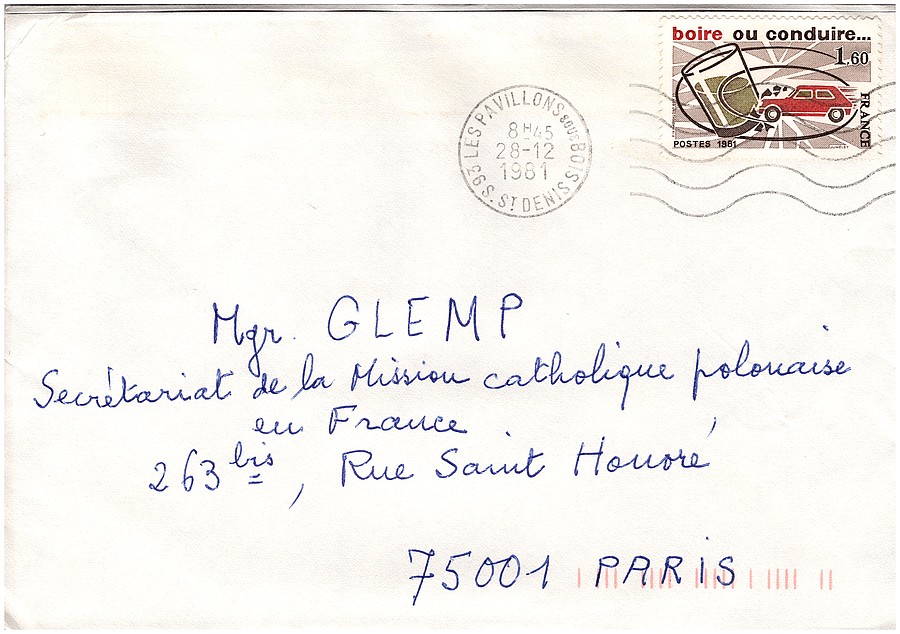 boire ou conduire...
1,60
FRANCE
POSTES 1981
93 LES PAVILLONS SOUS BOIS
8H45
28-12
1981
S. ST DENIS
Mgr. GLEMP
Secrétariat de la Mission catholique polonaise
en France
263 bis, Rue Saint Honoré
75001 PARIS